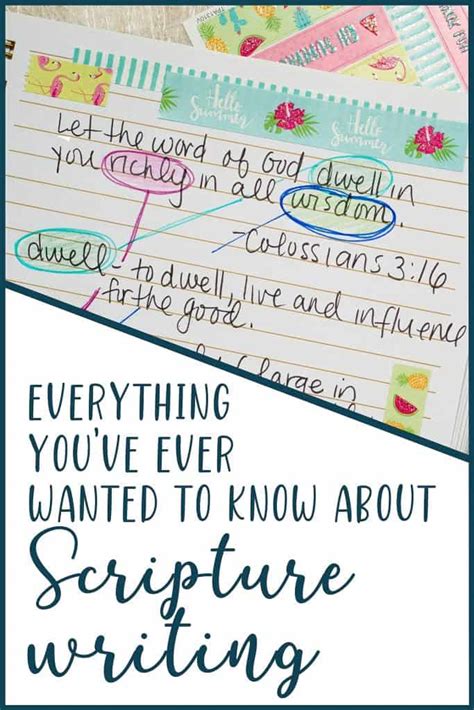 Hello Summer
Hello Summer
Let the word of God dwell in
you richly in all wisdom.
-Colossians 3:16
dwell - to dwell, live and influence
for the good.
large in
EVERYTHING
YOU'VE EVER
WANTED TO KNOW ABOUT
Scripture
writing